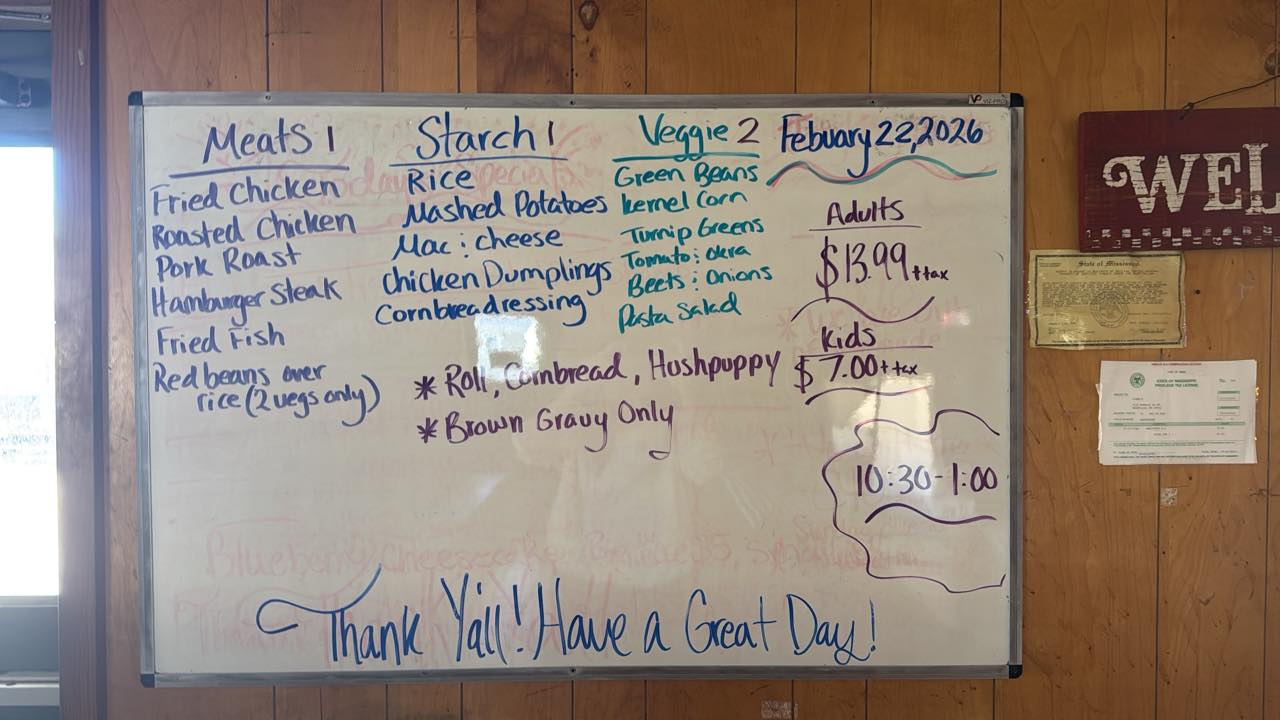 Meats 1
Fried Chicken
Roasted Chicken
Pork Roast
Hamburger Steak
Fried Fish
Red beans over
rice (2 vegs only)
Starch 1
Rice
Mashed Potatoes
Mac : cheese
Chicken Dumplings
Cornbreadressing
Veggie 2
Green Beans
kernel Corn
Turnip Greens
Tomato : okra
Beets : Onions
Pasta Salad
* Roll, Cornbread, Hushpuppy
* Brown Gravy Only
Febuary 22, 2026
Adults
$13.99 + tax
Kids
$ 7.00 + tax
10:30 - 1:00
Thank Y'all! Have a Great Day!
WEL
State of Mississippi
STATE OF MISSISSIPPI
PRIVILEGE TAX LICENSE